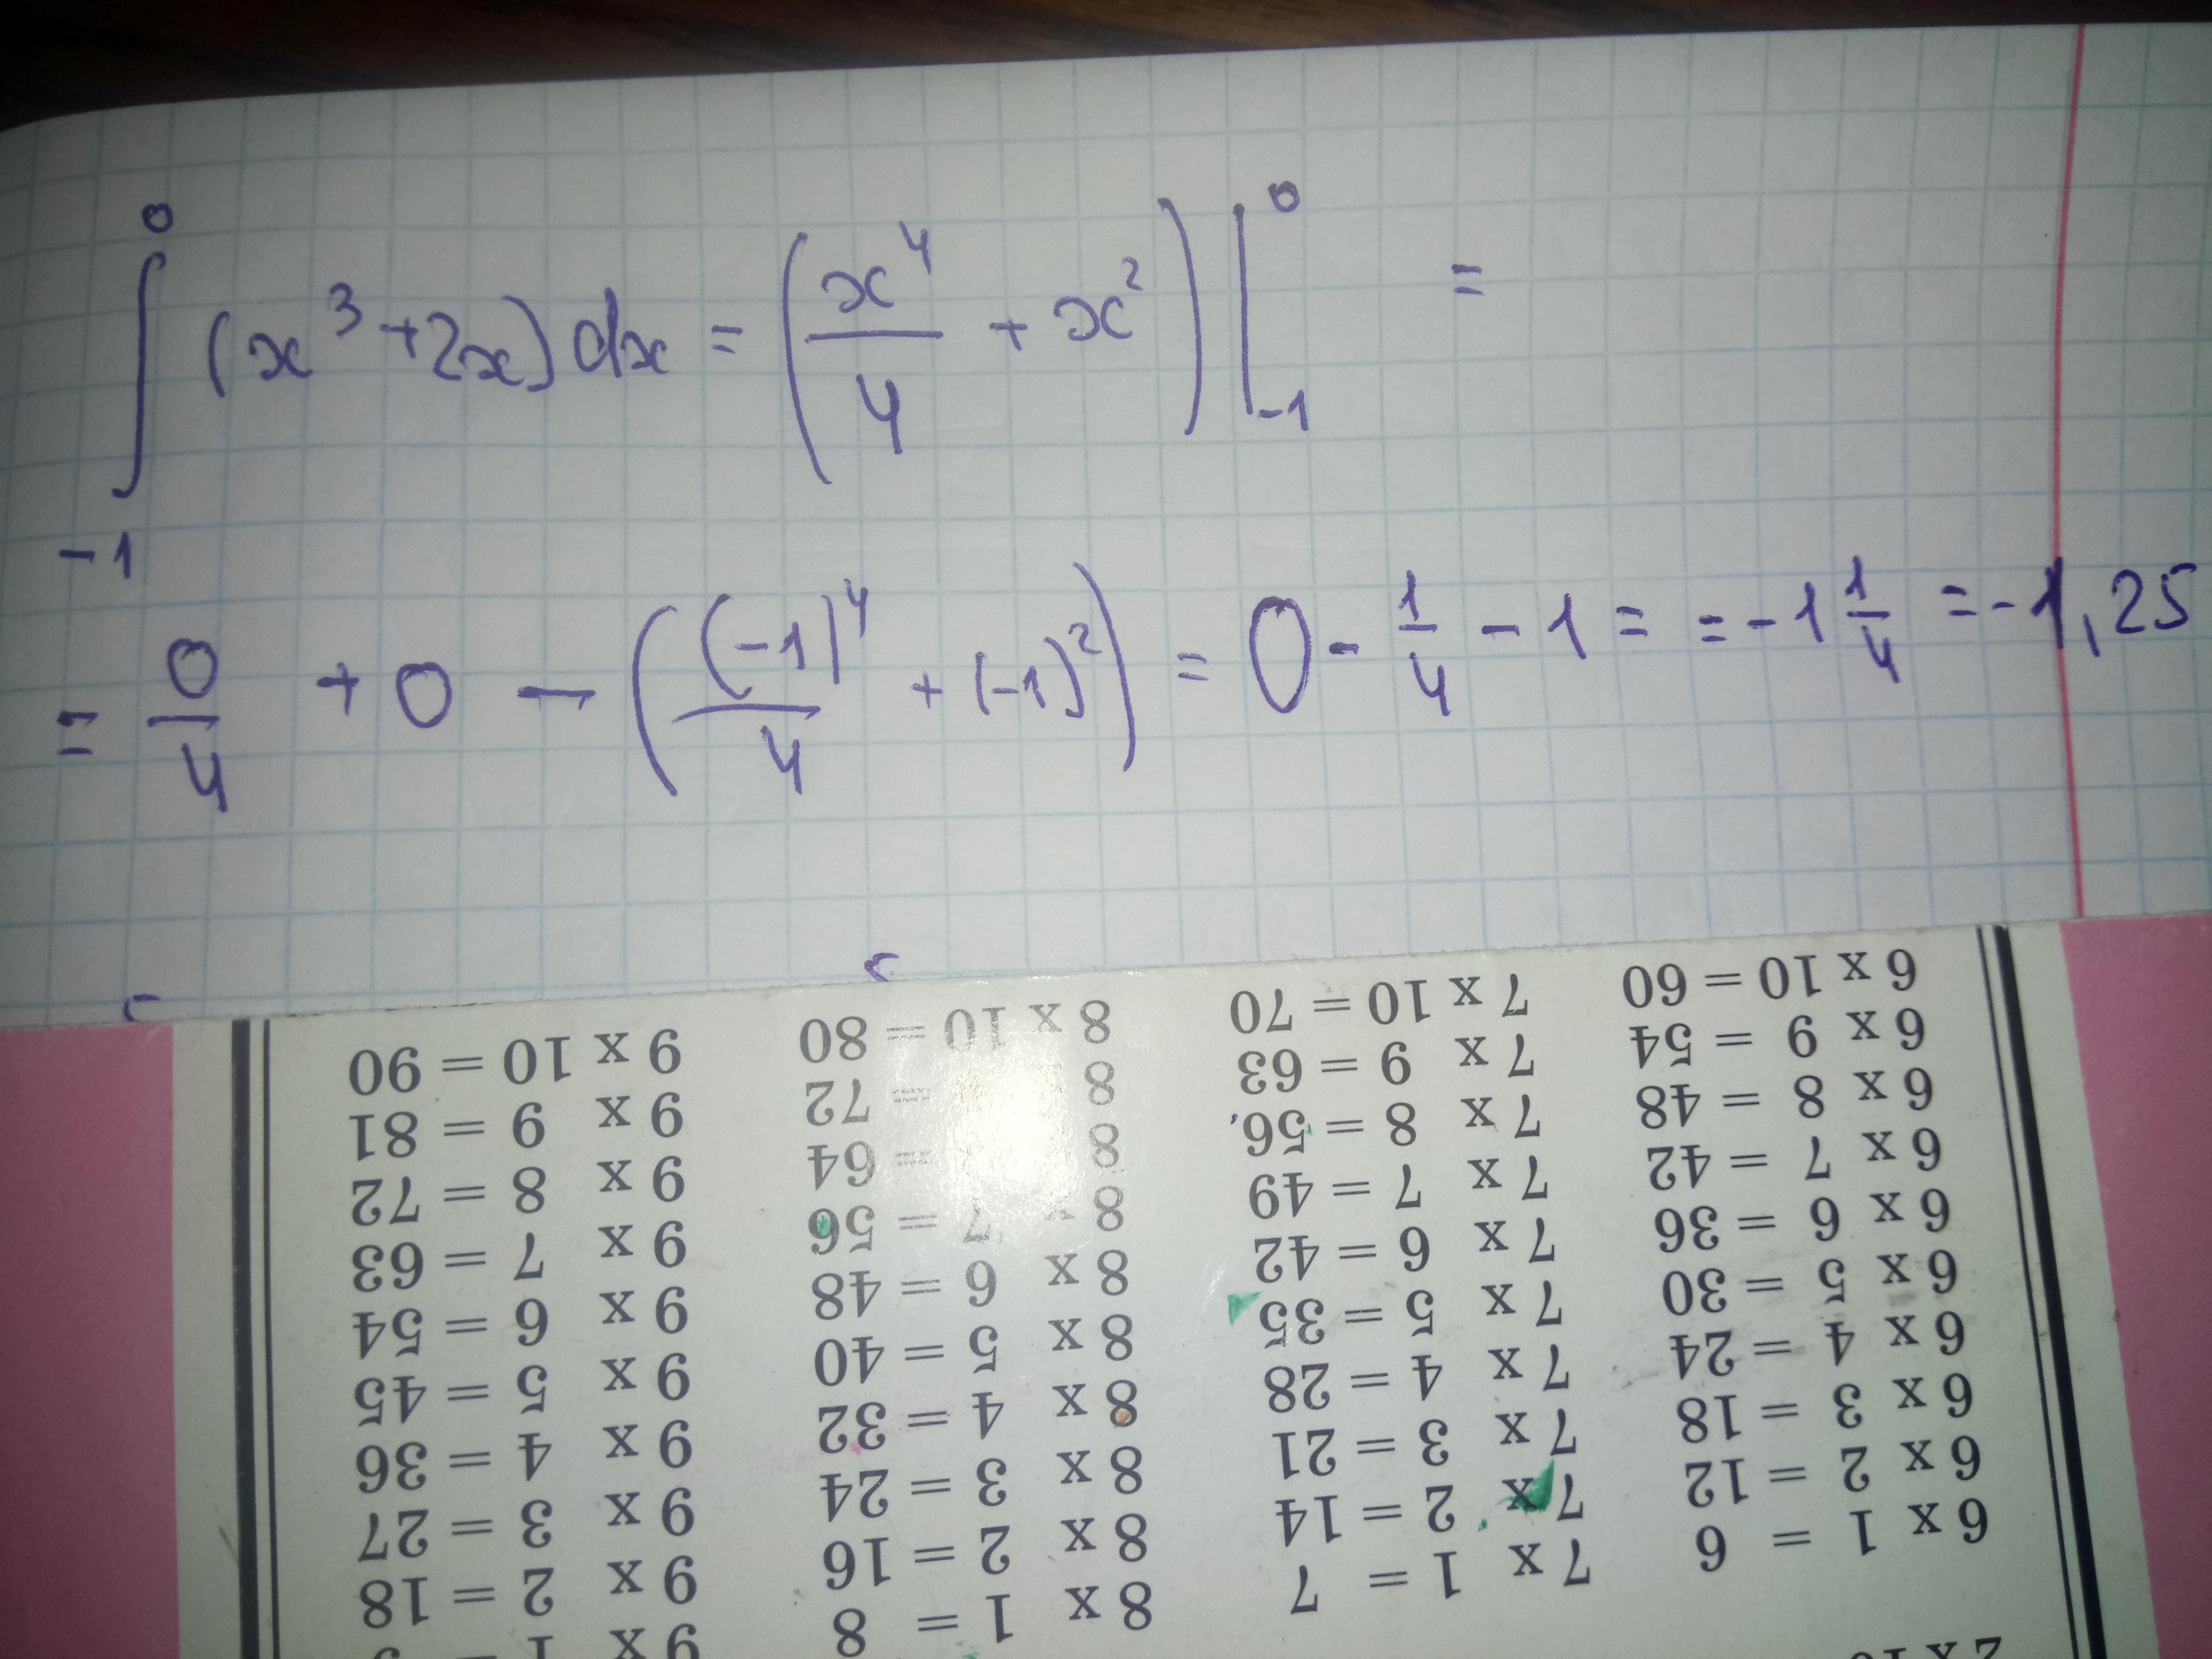 ∫₋₁⁰ (x³+2x)dx = (x⁴/4 + x²)|₋₁⁰ =
= 0/4 + 0 − ((-1)⁴/4 + (-1)²) = 0 - 1/4 - 1 = = -1 1/4 = -1,25
6 x 10 = 60
6 x 9 = 54
6 x 8 = 48
6 x 7 = 42
6 x 6 = 36
6 x 5 = 30
6 x 4 = 24
6 x 3 = 18
6 x 2 = 12
6 x 1 = 6
7 x 10 = 70
7 x 9 = 63
7 x 8 = 56
7 x 7 = 49
7 x 6 = 42
7 x 5 = 35
7 x 4 = 28
7 x 3 = 21
7 x 2 = 14
7 x 1 = 7
8 x 10 = 80
8 = 72
8 = 64
8 x 7 = 56
8 x 6 = 48
8 x 5 = 40
8 x 4 = 32
8 x 3 = 24
8 x 2 = 16
8 x 1 = 8
9 x 10 = 90
9 x 9 = 81
9 x 8 = 72
9 x 7 = 63
9 x 6 = 54
9 x 5 = 45
9 x 4 = 36
9 x 3 = 27
9 x 2 = 18
9 x 1 =